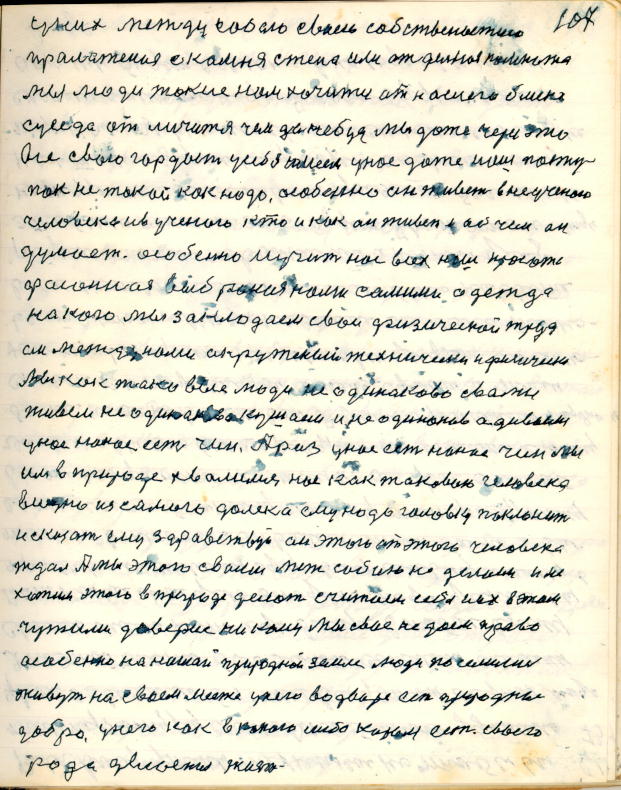 107
них между собою своею собственостию
с камня стена или
мы люди такие нам хочится от нашего близ
суседа отличатся чем занебуд мы даже через это
все свою гордост у себя имеем у нас даже наш посту
пок не такой как надо, особенно он живет в неученого
человека и в ученого кто и как он живет и об чем он
думает. особенно мучит нас всех наш
фасонная выбраная нами самими одежда
на кого мы закладаем свой физической труд
он между нами окружений технически и физически
мы как таковые люди не одинаково свами
живем не одинаково кушаем и не одинаково
у нас на нас ест чин. А раз у нас ест на нас чин мы
им в природе хвалимся нас как таковых человека
видно из самого далека ему надо головку поклонит
и сказат ему здравствуй он этого от этого человека
ждал А мы этого свами меж собою не делаем и не
хотим этого в природе делат считаем себя всех в этом
чужими доверие никому мы свое не даем право
особенно на нашей природной земле люди поселились
живут на своем месте у него во дворе ест природные
добро, у него как в какого либо ест. своего
рода явления жизн-